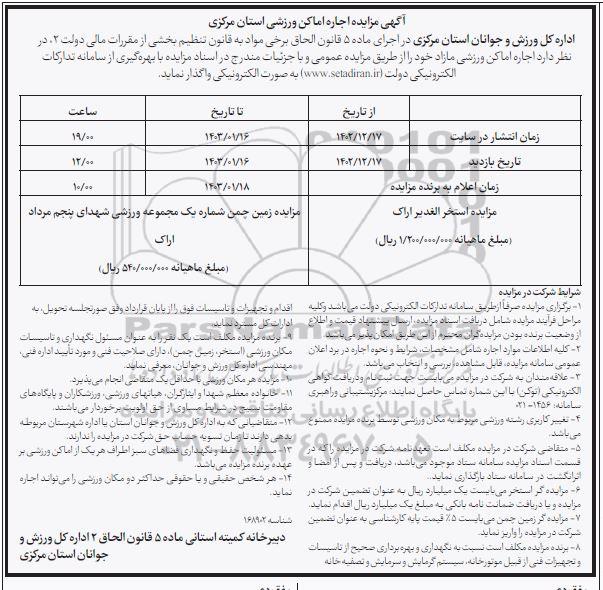 آگهی مزایده اجاره اماکن ورزشی استان مرکزی
اداره کل ورزش و جوانان استان مرکزی در اجرای ماده ۵ قانون الحاق برخی مواد به قانون تنظیم بخشی از مقررات مالی دولت ۲، در
نظر دارد اجاره اماکن ورزشی مازاد خود را از طریق مزایده عمومی و با جزئیات مندرج در اسناد مزایده با بهره‌گیری از سامانه تدارکات
الکترونیکی دولت (www.setadiran.ir) به صورت الکترونیکی واگذار نماید.
از تاریخ تا تاریخ ساعت
زمان انتشار در سایت ۱۴۰۲/۱۲/۱۷ ۱۴۰۳/۰۱/۱۶ ۱۹/۰۰
تاریخ بازدید ۱۴۰۲/۱۲/۱۷ ۱۴۰۳/۰۱/۱۶ ۱۲/۰۰
زمان اعلام به برنده مزایده ۱۴۰۳/۰۱/۱۸ ۱۰/۰۰
مزایده استخر الغدیر اراک
(مبلغ ماهیانه ۱/۲۰۰/۰۰۰/۰۰۰ ریال)
مزایده زمین چمن شماره یک مجموعه ورزشی شهدای پنجم مرداد
اراک
(مبلغ ماهیانه ۵۴۰/۰۰۰/۰۰۰ ریال)
شرایط شرکت در مزایده
۱- برگزاری مزایده صرفاً ازطریق سامانه تدارکات الکترونیکی دولت می باشد وکلیه
مراحل فرآیند مزایده شامل دریافت اسناد مزایده، ارسال پیشنهاد قیمت و اطلاع
از وضعیت برنده بودن مزایده‌گران محترم از این طریق امکان پذیر می‌باشد.
۲- کلیه اطلاعات موارد اجاره شامل مشخصات، شرایط و نحوه اجاره در برد اعلان
عمومی سامانه مزایده، قابل مشاهده، بررسی و انتخاب می باشد.
۳- علاقه‌مندان به شرکت در مزایده می‌بایست جهت ثبت نام ودریافت گواهی
الکترونیکی (توکن) با این شماره تماس حاصل نمایند: مرکزپشتیبانی و راهبری
سامانه: ۱۴۵۶-۰۲۱
۴- تغییر کاربری رشته ورزشی مربوط به مکان ورزشی توسط برنده مزایده ممنوع
می‌باشد.
۵- متقاضی شرکت در مزایده مکلف است تعهدنامه شرکت در مزایده را که در
قسمت اسناد مزایده سامانه ستاد موجود می‌باشد، دریافت و پس از امضا و
اثرانگشت در سامانه ستاد بارگذاری نماید.
۶- مزایده گر استخر می‌بایست یک میلیارد ریال به عنوان تضمین شرکت در
مزایده و یا دریافت ضمانت نامه بانکی به مبلغ یک میلیارد ریال اقدام نماید.
۷- مزایده گر زمین چمن می‌بایست ۵٪ قیمت پایه کارشناسی به عنوان تضمین
شرکت در مزایده را واریز نماید.
۸- برنده مزایده مکلف است نسبت به نگهداری و بهره برداری صحیح از تاسیسات
و تجهیزات فنی از قبیل موتورخانه، سیستم گرمایش و سرمایش و تصفیه خانه
اقدام و تجهیزات و تاسیسات فوق را از پایان قرارداد وفق صورتجلسه تحویل، به
ادارات کل مسترد نماید.
۹- برنده مزایده مکلف است یک نفر را به عنوان مسئول نگهداری و تاسیسات
مکان ورزشی (استخر، زمیل چمن)، دارای صلاحیت فنی و مورد تأیید اداره فنی،
مهندسی اداره کل ورزش و جوانان، معرفی نماید.
۱۰- مزایده هر مکان ورزشی با حداقل یک متقاضی انجام می‌پذیرد.
۱۱- خانواده معظم شهدا و ایثارگران، هیاتهای ورزشی، ورزشکاران و پایگاه‌های
مقاومت بسیج در شرایط مساوی از حق اولویت برخوردار می باشند.
۱۲- متقاضیانی که به اداره کل ورزش و جوانان استان یا اداره شهرستان مربوطه
بدهی دارند تا زمان تسویه حساب حق شرکت در مزایده را ندارند.
۱۳- مسئولیت حفظ و نگهداری فضاهای سبز اطراف هر یک از اماکن ورزشی بر
عهده برنده مزایده می‌باشد.
۱۴- هر شخص حقیقی و یا حقوقی حداکثر دو مکان ورزشی را می‌تواند اجاره
نماید.
شناسه ۱۶۸۹۰۲
دبیرخانه کمیته استانی ماده ۵ قانون الحاق ۲ اداره کل ورزش و
جوانان استان مرکزی